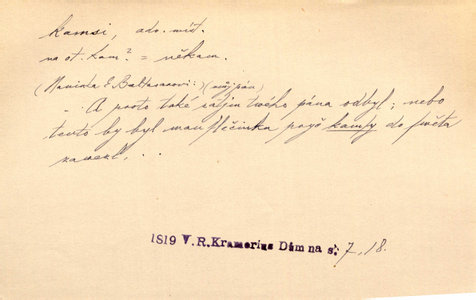 kamsi, adv. míst.
na ot. kam? = někam.
(Maninka E Baltazarovi:) (můj pán)
„ A proto také tvého pána odbyl; nebo
tento by byl pryč kamsy do světa
zavezl, . . .
1819 V.R.Kramerius Dům na s. 7, 18.